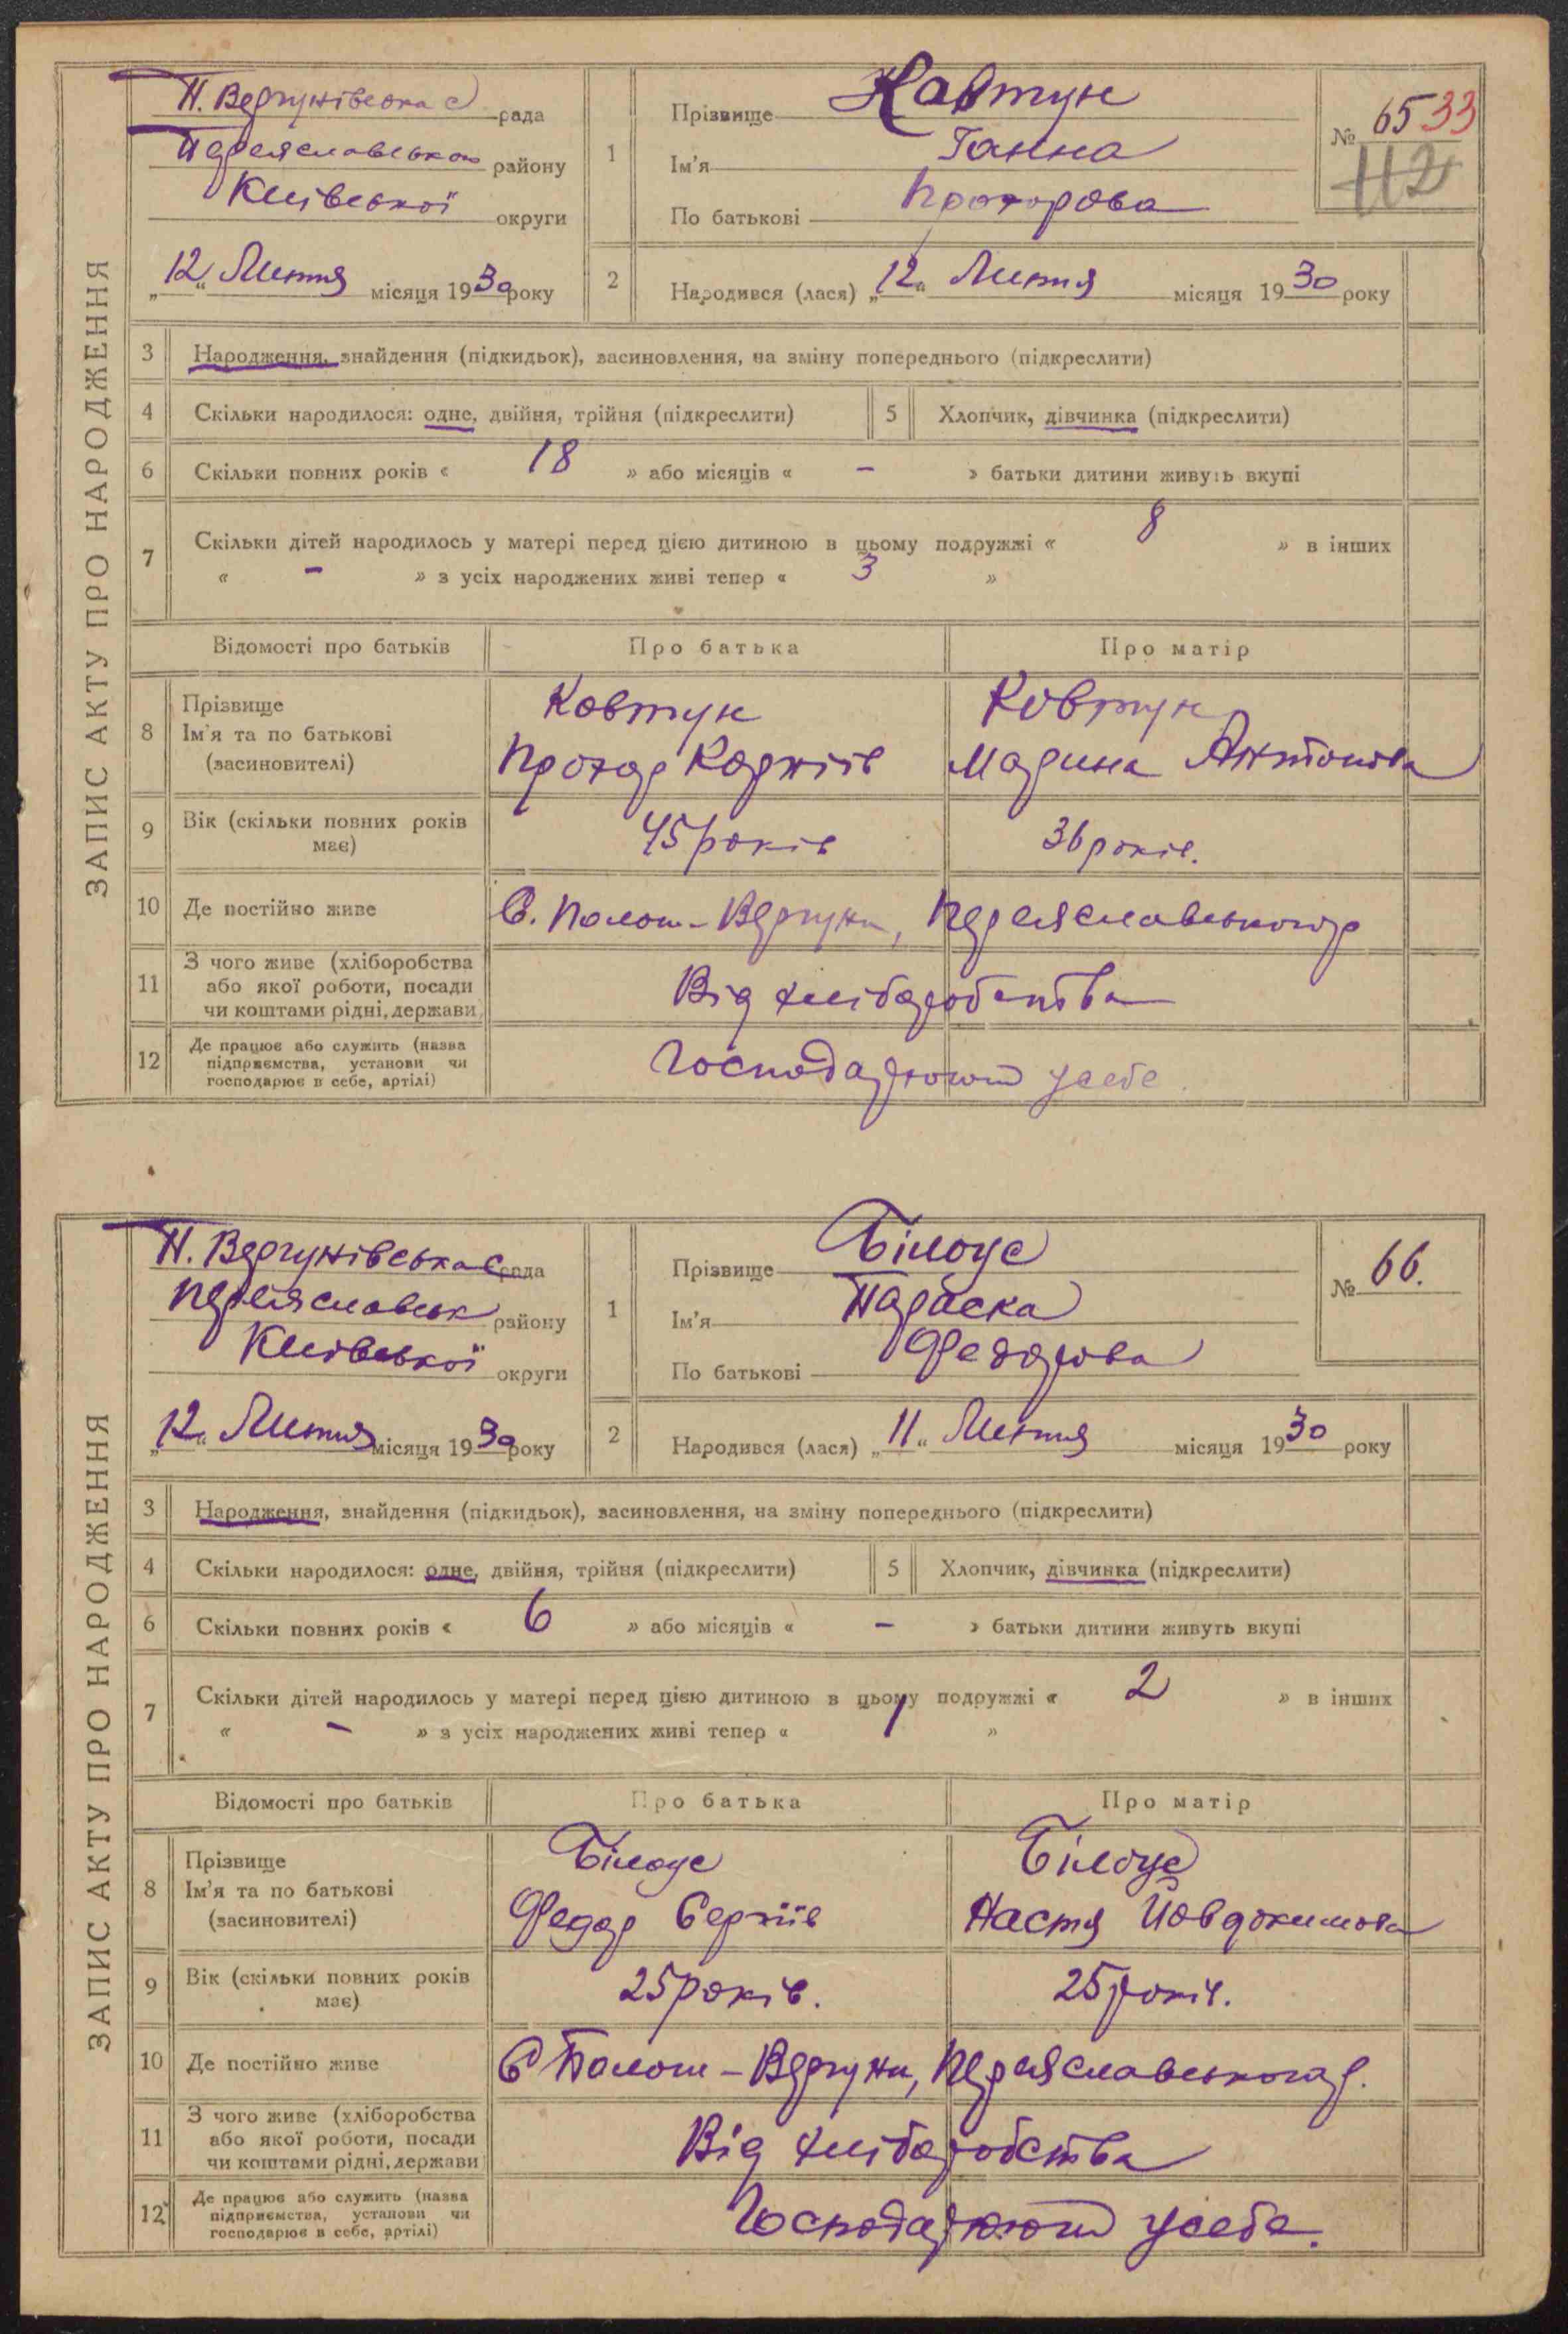 ЗАПИС АКТУ ПРО НАРОДЖЕННЯ
П. Вергунівська с рада
Переяславського району
Київської округи
„12“ Липня місяця 1930 року
1 Прізвище Ковтун
Ім'я Ганна
По батькові Прохорова
№ 65 33
112
2 Народився (лася) „12“ Липня місяця 1930 року
3 Народження, знайдення (підкидьок), засиновлення, на зміну попереднього (підкреслити)
4 Скільки народилося: одне, двійня, трійня (підкреслити) 5 Хлопчик, дівчинка (підкреслити)
6 Скільки повних років « 18 » або місяців « - » батьки дитини живуть вкупі
7 Скільки дітей народилось у матері перед цією дитиною в цьому подружжі « 8 » в інших
« - » з усіх народжених живі тепер « 3 »
Відомості про батьків Про батька Про матір
8 Прізвище Ковтун Ковтун
Ім'я та по батькові Прохор Корніїв Марина Антонова
(засиновителі)
9 Вік (скільки повних років має) 45 років 36 років.
10 Де постійно живе С. Полом-Вергуни, Переяславського р
11 З чого живе (хліборобства або якої роботи, посади чи коштами рідні, держави) Від хліборобства
12 Де працює або служить (назва підприємства, установи чи господарює в себе, артілі) Господарюют усебе
ЗАПИС АКТУ ПРО НАРОДЖЕННЯ
П. Вергунівська с рада
Переяславськ району
Київської округи
„12“ Липня місяця 1930 року
1 Прізвище Білоус
Ім'я Параска
По батькові Федорова
№ 66.
2 Народився (лася) „11“ Липня місяця 1930 року
3 Народження, знайдення (підкидьок), засиновлення, на зміну попереднього (підкреслити)
4 Скільки народилося: одне, двійня, трійня (підкреслити) 5 Хлопчик, дівчинка (підкреслити)
6 Скільки повних років « 6 » або місяців « - » батьки дитини живуть вкупі
7 Скільки дітей народилось у матері перед цією дитиною в цьому подружжі « 2 » в інших
« - » з усіх народжених живі тепер « 1 »
Відомості про батьків Про батька Про матір
8 Прізвище Білоус Білоус
Ім'я та по батькові Федор Сергіїв Настя Йовдокимова
(засиновителі)
9 Вік (скільки повних років має) 25 років. 25 років.
10 Де постійно живе С Полом-Вергуни, Переяславського р.
11 З чого живе (хліборобства або якої роботи, посади чи коштами рідні, держави) Від хліборобства
12 Де працює або служить (назва підприємства, установи чи господарює в себе, артілі) Господарюют усебе.